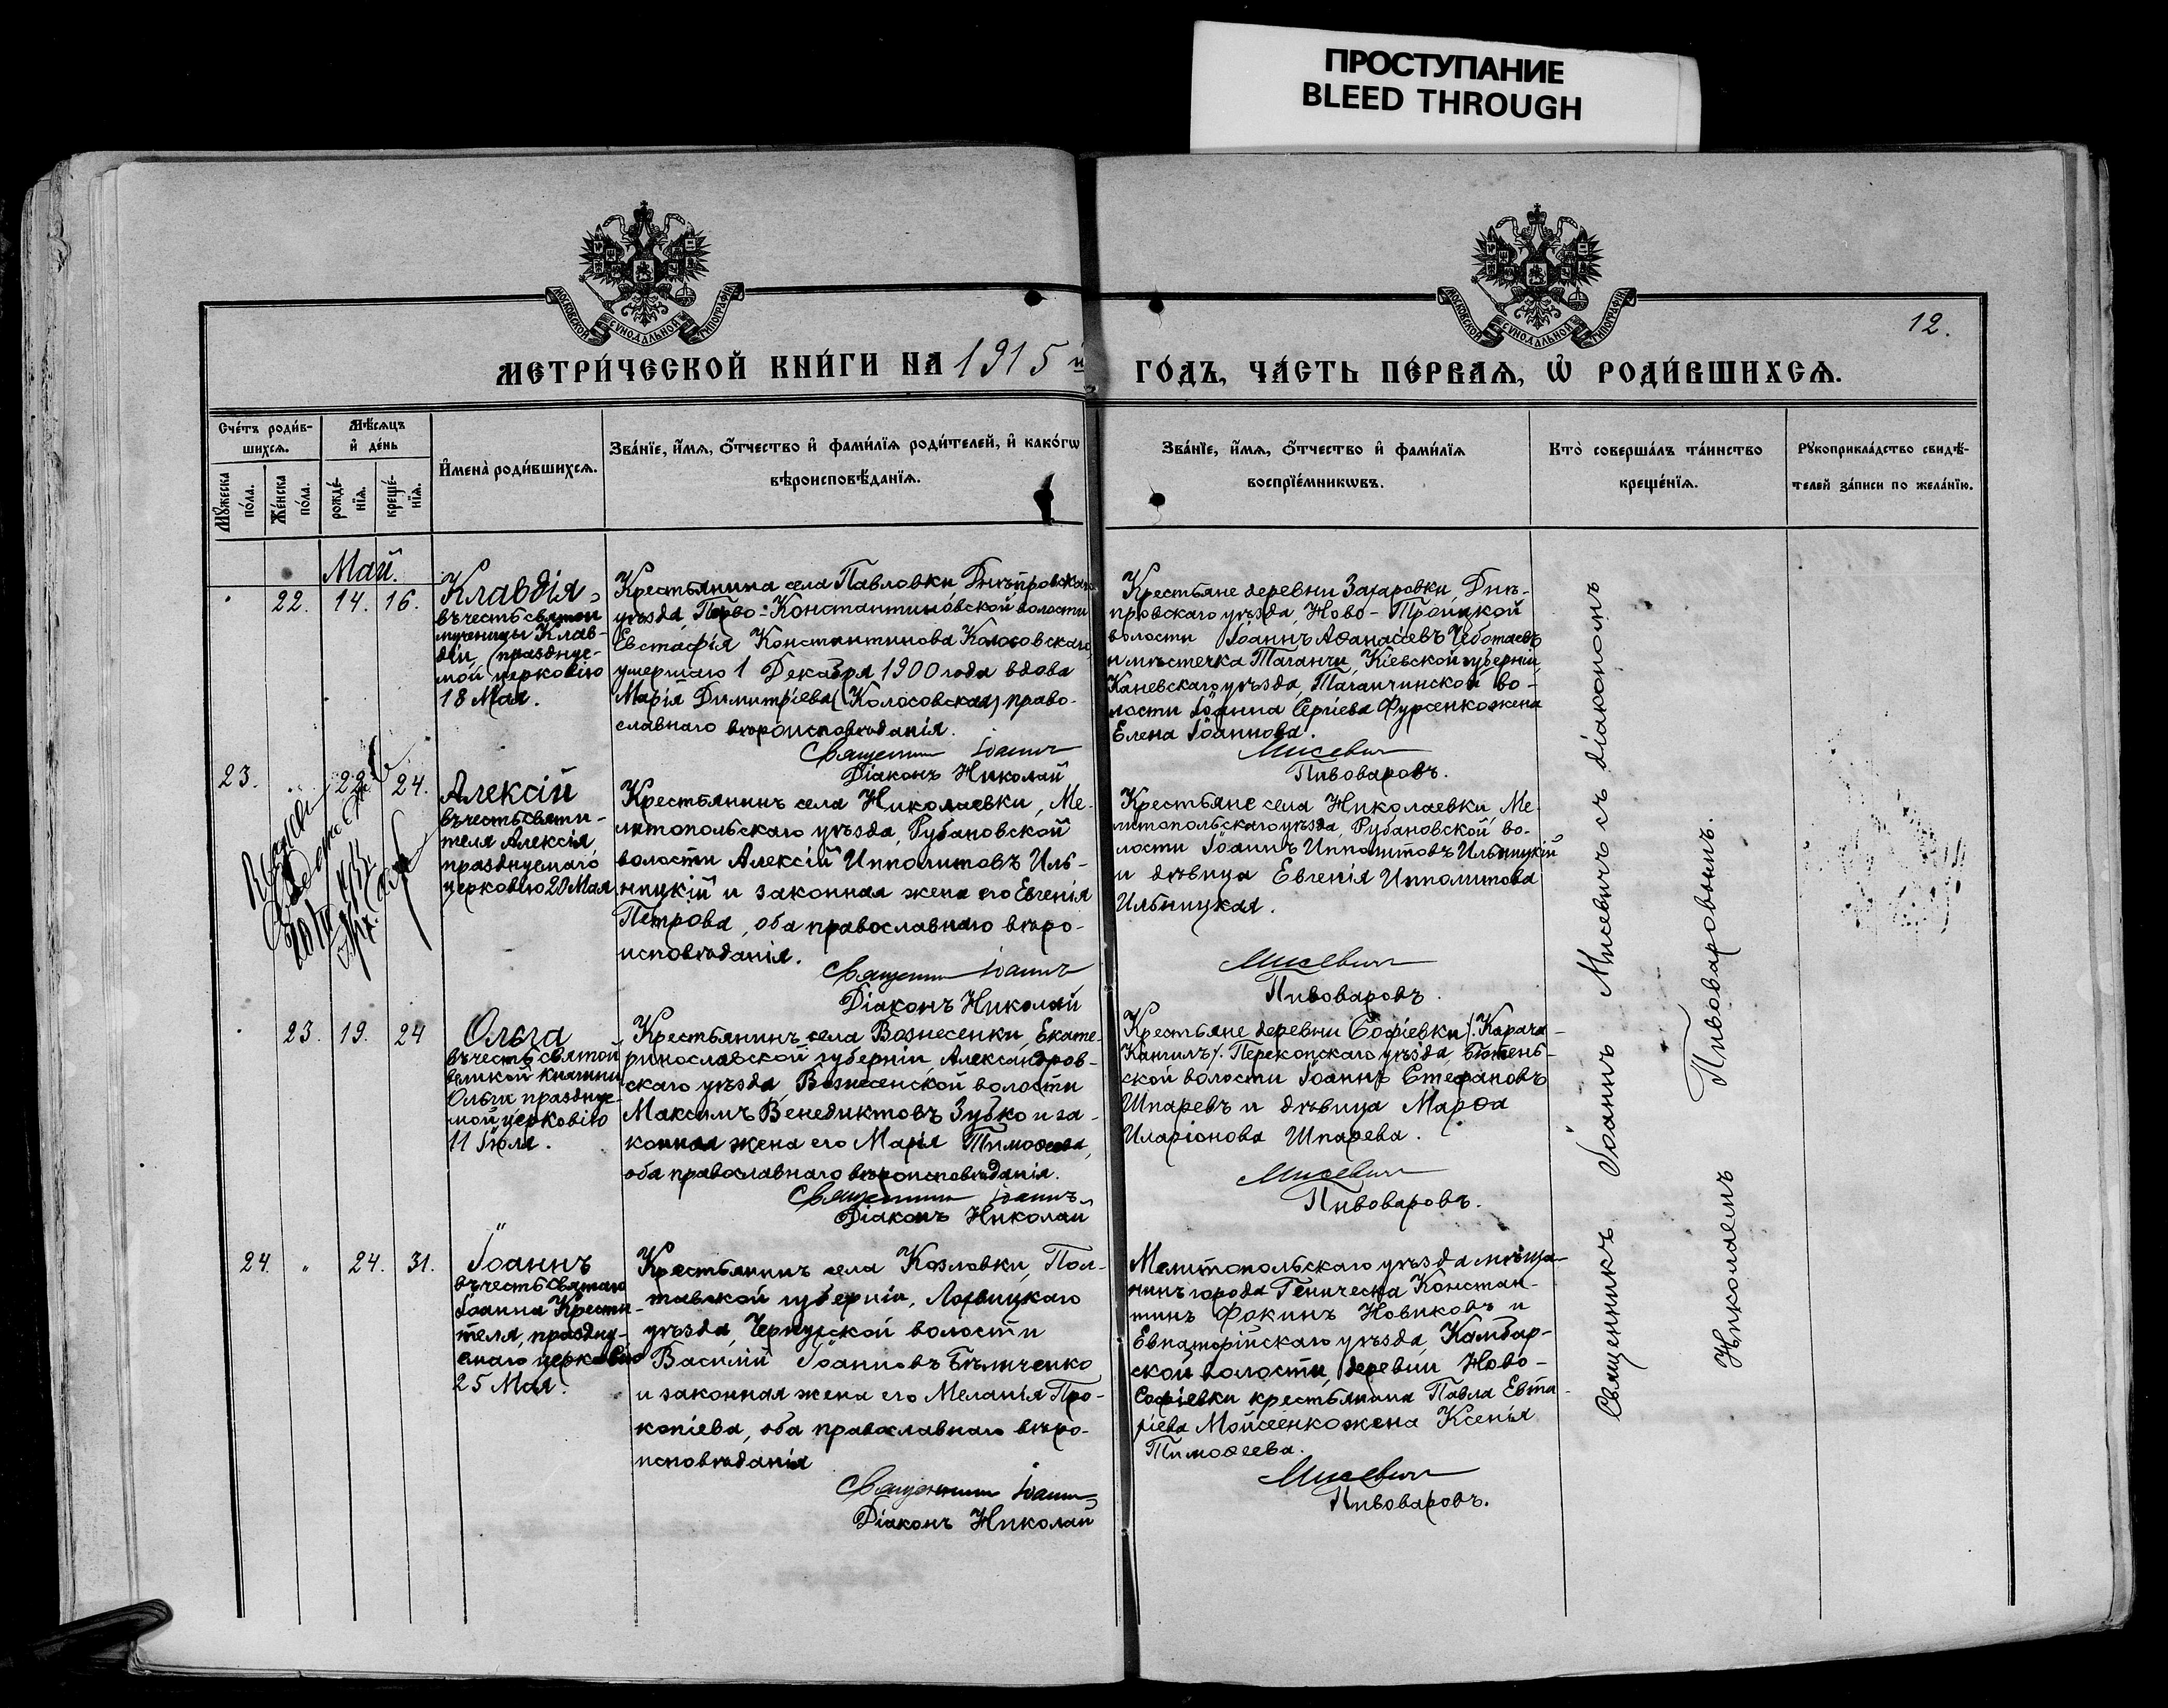 ПРОСТУПАНИЕ
BLEED THROUGH
МОСКОВСКОЙ СѴНОДАЛЬНОЙ ТИПОГРАФІИ
МОСКОВСКОЙ СѴНОДАЛЬНОЙ ТИПОГРАФІИ
12.
МЕТРИ́ЧЕСКОЙ КНИ́ГИ НА 1915 й
ГО́ДЪ, ЧА́СТЬ ПЕ́РВАѦ, Ѡ҆ РОДИ́ВШИХСѦ.
Сче́тъ роди́в-
шихсѧ.
Мѣ́сѧцъ
и҆ де́нь
Мꙋ́жеска
по́ла.
Же́нска
по́ла.
рожде́-
нїѧ.
креще́-
нїѧ.
И҆мена̀ роди́вшихсѧ.
Зва́нїе, и҆́мѧ, ѻ҆́тчество и҆ фами́лїѧ роди́телей, и҆ како́гѡ
вѣроисповѣ́данїѧ.
Зва́нїе, и҆́мѧ, ѻ҆́тчество и҆ фами́лїѧ
воспрїе́мникѡвъ.
Кто̀ соверша́лъ та́инство
креще́нїѧ.
Рꙋкоприкла́дство свидѣ́-
телей за́писи по жела́нїю.
Май.
22. 14. 16.
Клавдія,
въ честь святой
мученицы Клав-
діи, празднуе-
мой церковію
18 Мая.
Крестьянина села Павловки, Днѣпровскаго
уѣзда, Перво-Константиновской волости
Евстафія Константинова Колосовскаго,
умершаго 1 Декабря 1900 года вдова
Марія Димитріева (Колосовская) право-
славнаго вѣроисповѣданія.
Священникъ Іоаннъ
Діаконъ Николай
Крестьяне деревни Захаровки, Днѣ-
провскаго уѣзда, Ново-Троицкой
волости Іоаннъ Аѳанасіевъ Чеботаевъ
и мѣстечка Таганчи, Кіевской губерніи,
Каневскаго уѣзда, Таганчинской во-
лости Іоанна Сергіева Фурсенко жена
Елена Іоаннова.
Мисевичъ
Пивоваровъ.
23. " 22. 24.
Алексій
въ честь святи-
теля Алексія,
празднуемаго
церковію 20 Мая
Крестьянинъ села Николаевки, Ме-
литопольскаго уѣзда, Рубановской
волости Алексій Ипполитовъ Иль-
ницкій и законная жена его Евгенія
Петрова, оба православнаго вѣро-
исповѣданія.
Священникъ Іоаннъ
Діаконъ Николай
Крестьяне села Николаевки, Ме-
литопольскаго уѣзда, Рубановской во-
лости Іоаннъ Ипполитовъ Ильницкій
и дѣвица Евгенія Ипполитова
Ильницкая.
Мисевичъ
Пивоваровъ.
23. 19. 24
Ольга
въ честь святой
великой княгини
Ольги празднуе-
мой церковію
11 Іюля.
Крестьянинъ села Вознесенки, Екате-
ринославской губерніи, Александров-
скаго уѣзда, Вознесенской волости
Максимъ Венедиктовъ Зубко и за-
конная жена его Марія Тимоѳеева,
оба православнаго вѣроисповѣданія.
Священникъ Іоаннъ
Діаконъ Николай
Крестьяне деревни Софіевки /:Карача-
Кангилъ/: Перекопскаго уѣзда, Бютень-
ской волости Іоаннъ Стефановъ
Шпаревъ и дѣвица Марѳа
Иларіонова Шпарева.
Мисевичъ
Пивоваровъ.
24. " 24. 31.
Іоаннъ
въ честь святаго
Іоанна Крести-
теля, праздну-
емаго церковію
25 Мая.
Крестьянинъ села Козловки, Пол-
тавской губерніи, Лохвицкаго
уѣзда, Чернухской волости
Василій Іоанновъ Бѣличенко
и законная жена его Меланія Про-
копіева, оба православнаго вѣро-
исповѣданія
Священникъ Іоаннъ
Діаконъ Николай
Мелитопольскаго уѣзда мѣща-
нинъ города Геническа Констан-
тинъ Фокинъ Новиковъ и
Евпаторійскаго уѣзда, Камбар-
ской волости, деревни Ново-
Софіевки крестьянина Павла Евта-
ріева Мойсеенко жена Ксенія
Тимоѳеева.
Мисевичъ
Пивоваровъ.
Священникъ Іоаннъ Мисевичъ съ діакономъ
Николаемъ Пивоваровымъ.